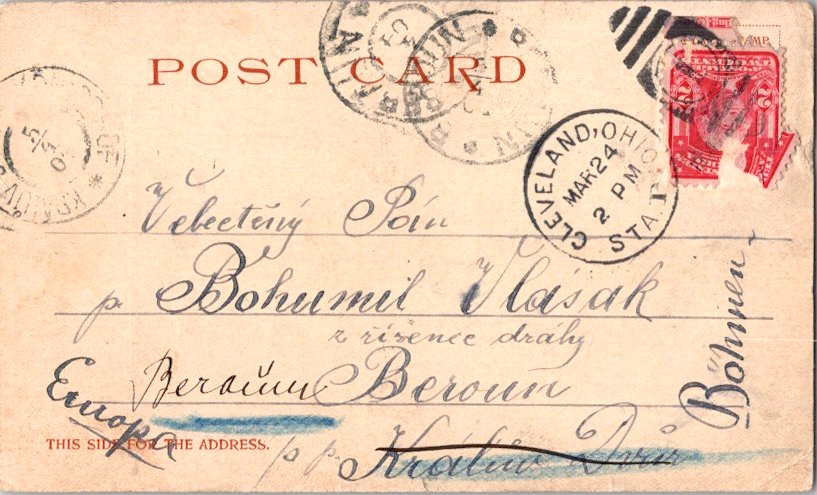 POST CARD
CLEVELAND, OHIO
MAR 24
2 PM
STA.
Velectěný Pán
p. Bohumil Vlasák
z řízence dráhy
Beroun Beroun
Böhmen
Europa
THIS SIDE FOR THE ADDRESS.
p p. Králův Dvůr